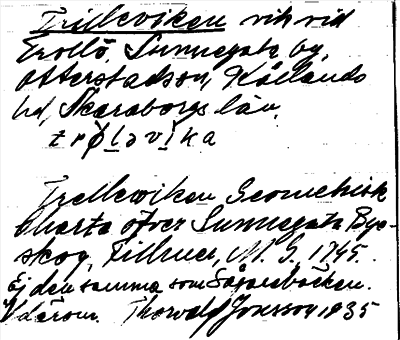 Trilleviken vik vid
Trollö, Sunnegata by,
Otterstadson, Kållands
hd, Skaraborgs län.
Trellewiken Geometrisk
Charta öfver Sunnegata Bys-
skog, Tillmer, M. G. 1745.
Ej den samma som Sågarebäcken.
V därom. Thorvald Jonsson 1935